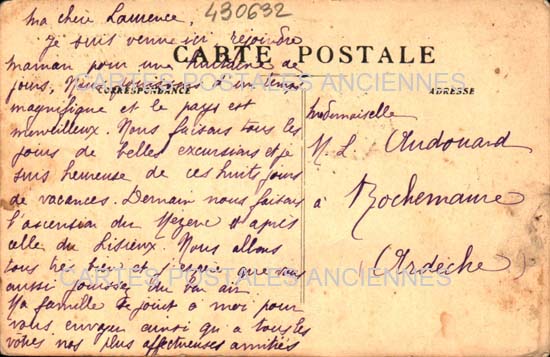 Ma chère Laurence,
430632
Je suis venue ici rejoindre
CARTE POSTALE
maman pour une huitaine de
jours, Nous un temps
CORRESPONDANCE
ADRESSE
CARTES POSTALES ANCIENNES
magnifique et le pays est
merveilleux. Nous faisons tous les
jours de belles excursions et je
suis heureuse de ces huit jours
de vacances. Demain nous faisons
l'ascension du Mezenc et après
celle du Lisieux. Nous allons
tous très bien et que vous
aussi jouissez du bon air
Ma famille se joint à moi pour
vous envoyer ainsi qu'à tous les
vôtres nos plus affectueuses amitiés
Mademoiselle
M. L. Audouard
à Rochemaure
(Ardèche)
CARTES POSTALES ANCIENNES